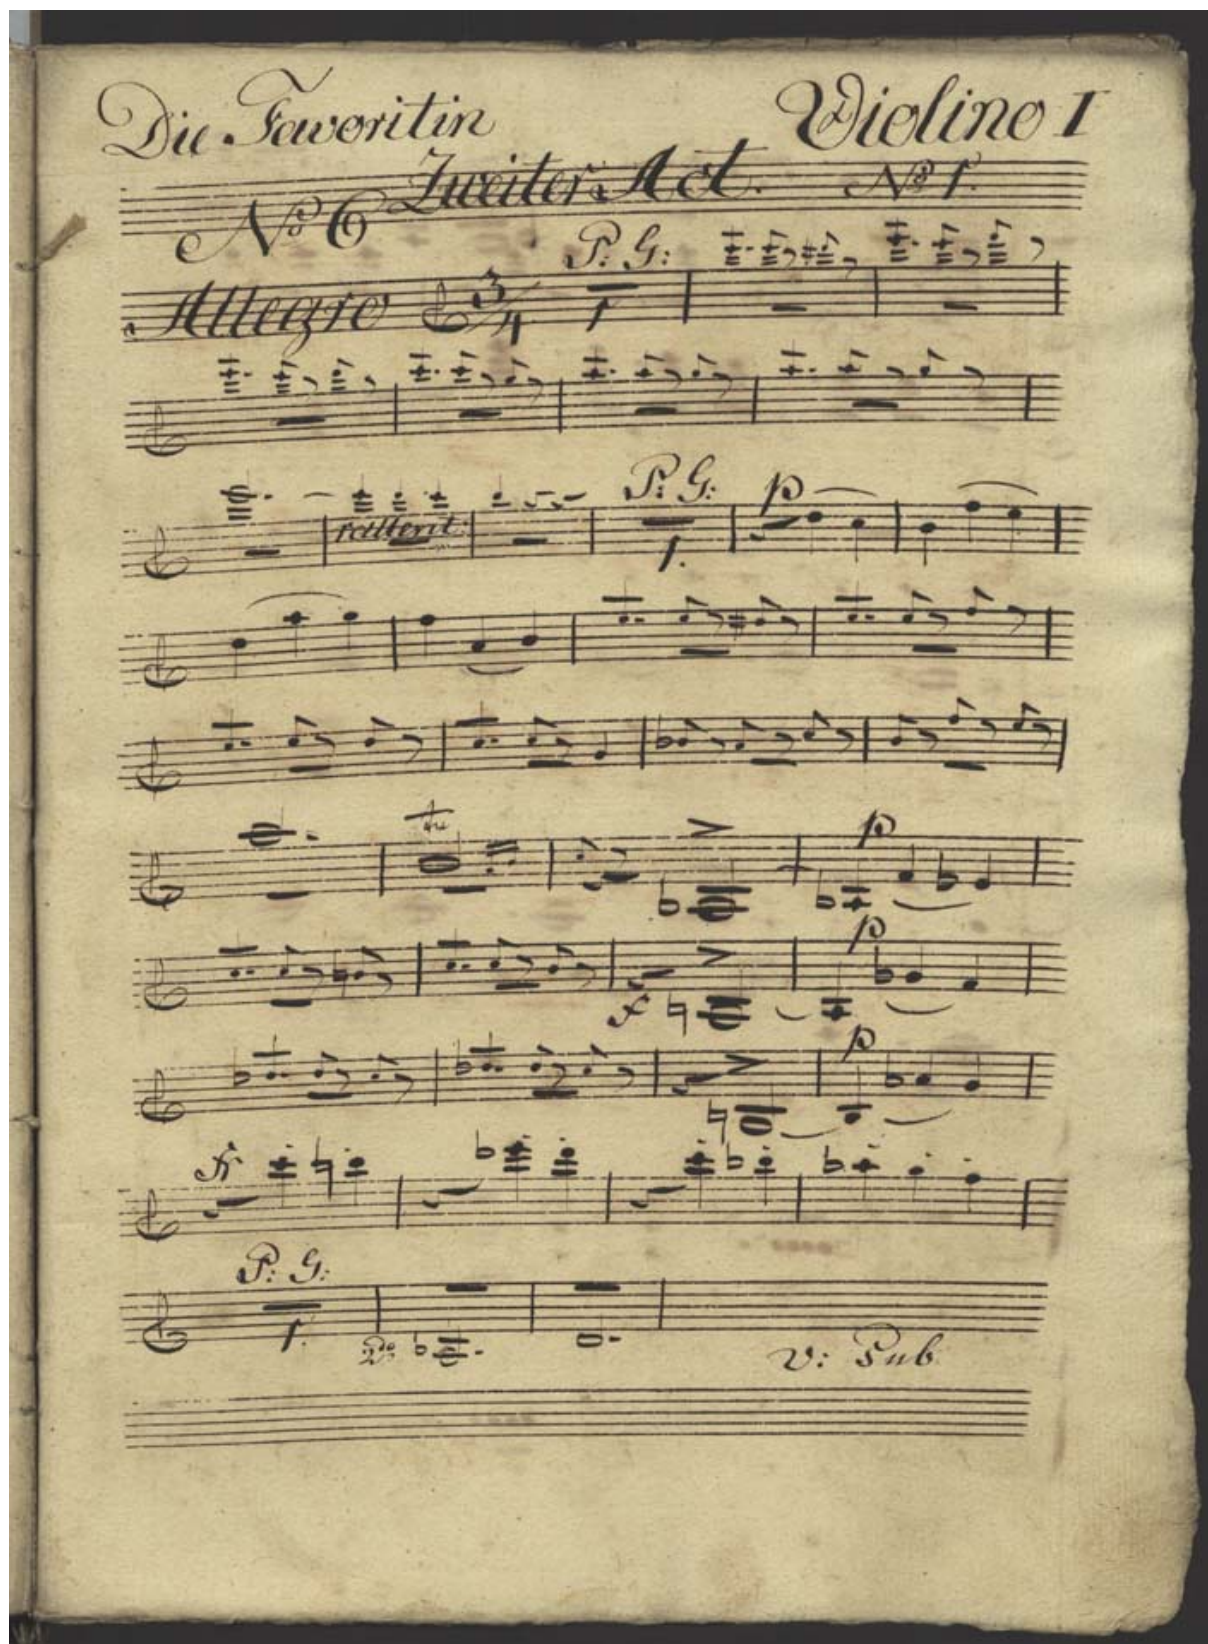 Die Favoritin Violino I
Zweiter Act. No 1.
No 6
P: G:
Allegro 3/4 1
P: G: p
rallent: 1.
tr p
p
f
p
fr
P: G:
1.
2do
V: Sub